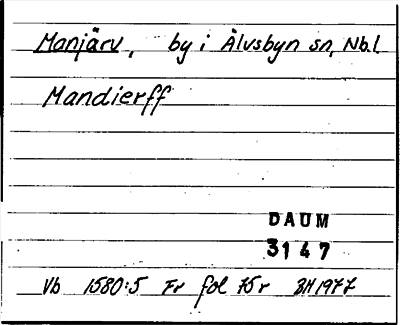 Manjärv, by i Älvsbyn sn, Nbl.
Mandierff
DAUM
3147
Vb 1580:5 Fr fol 75r BH1977